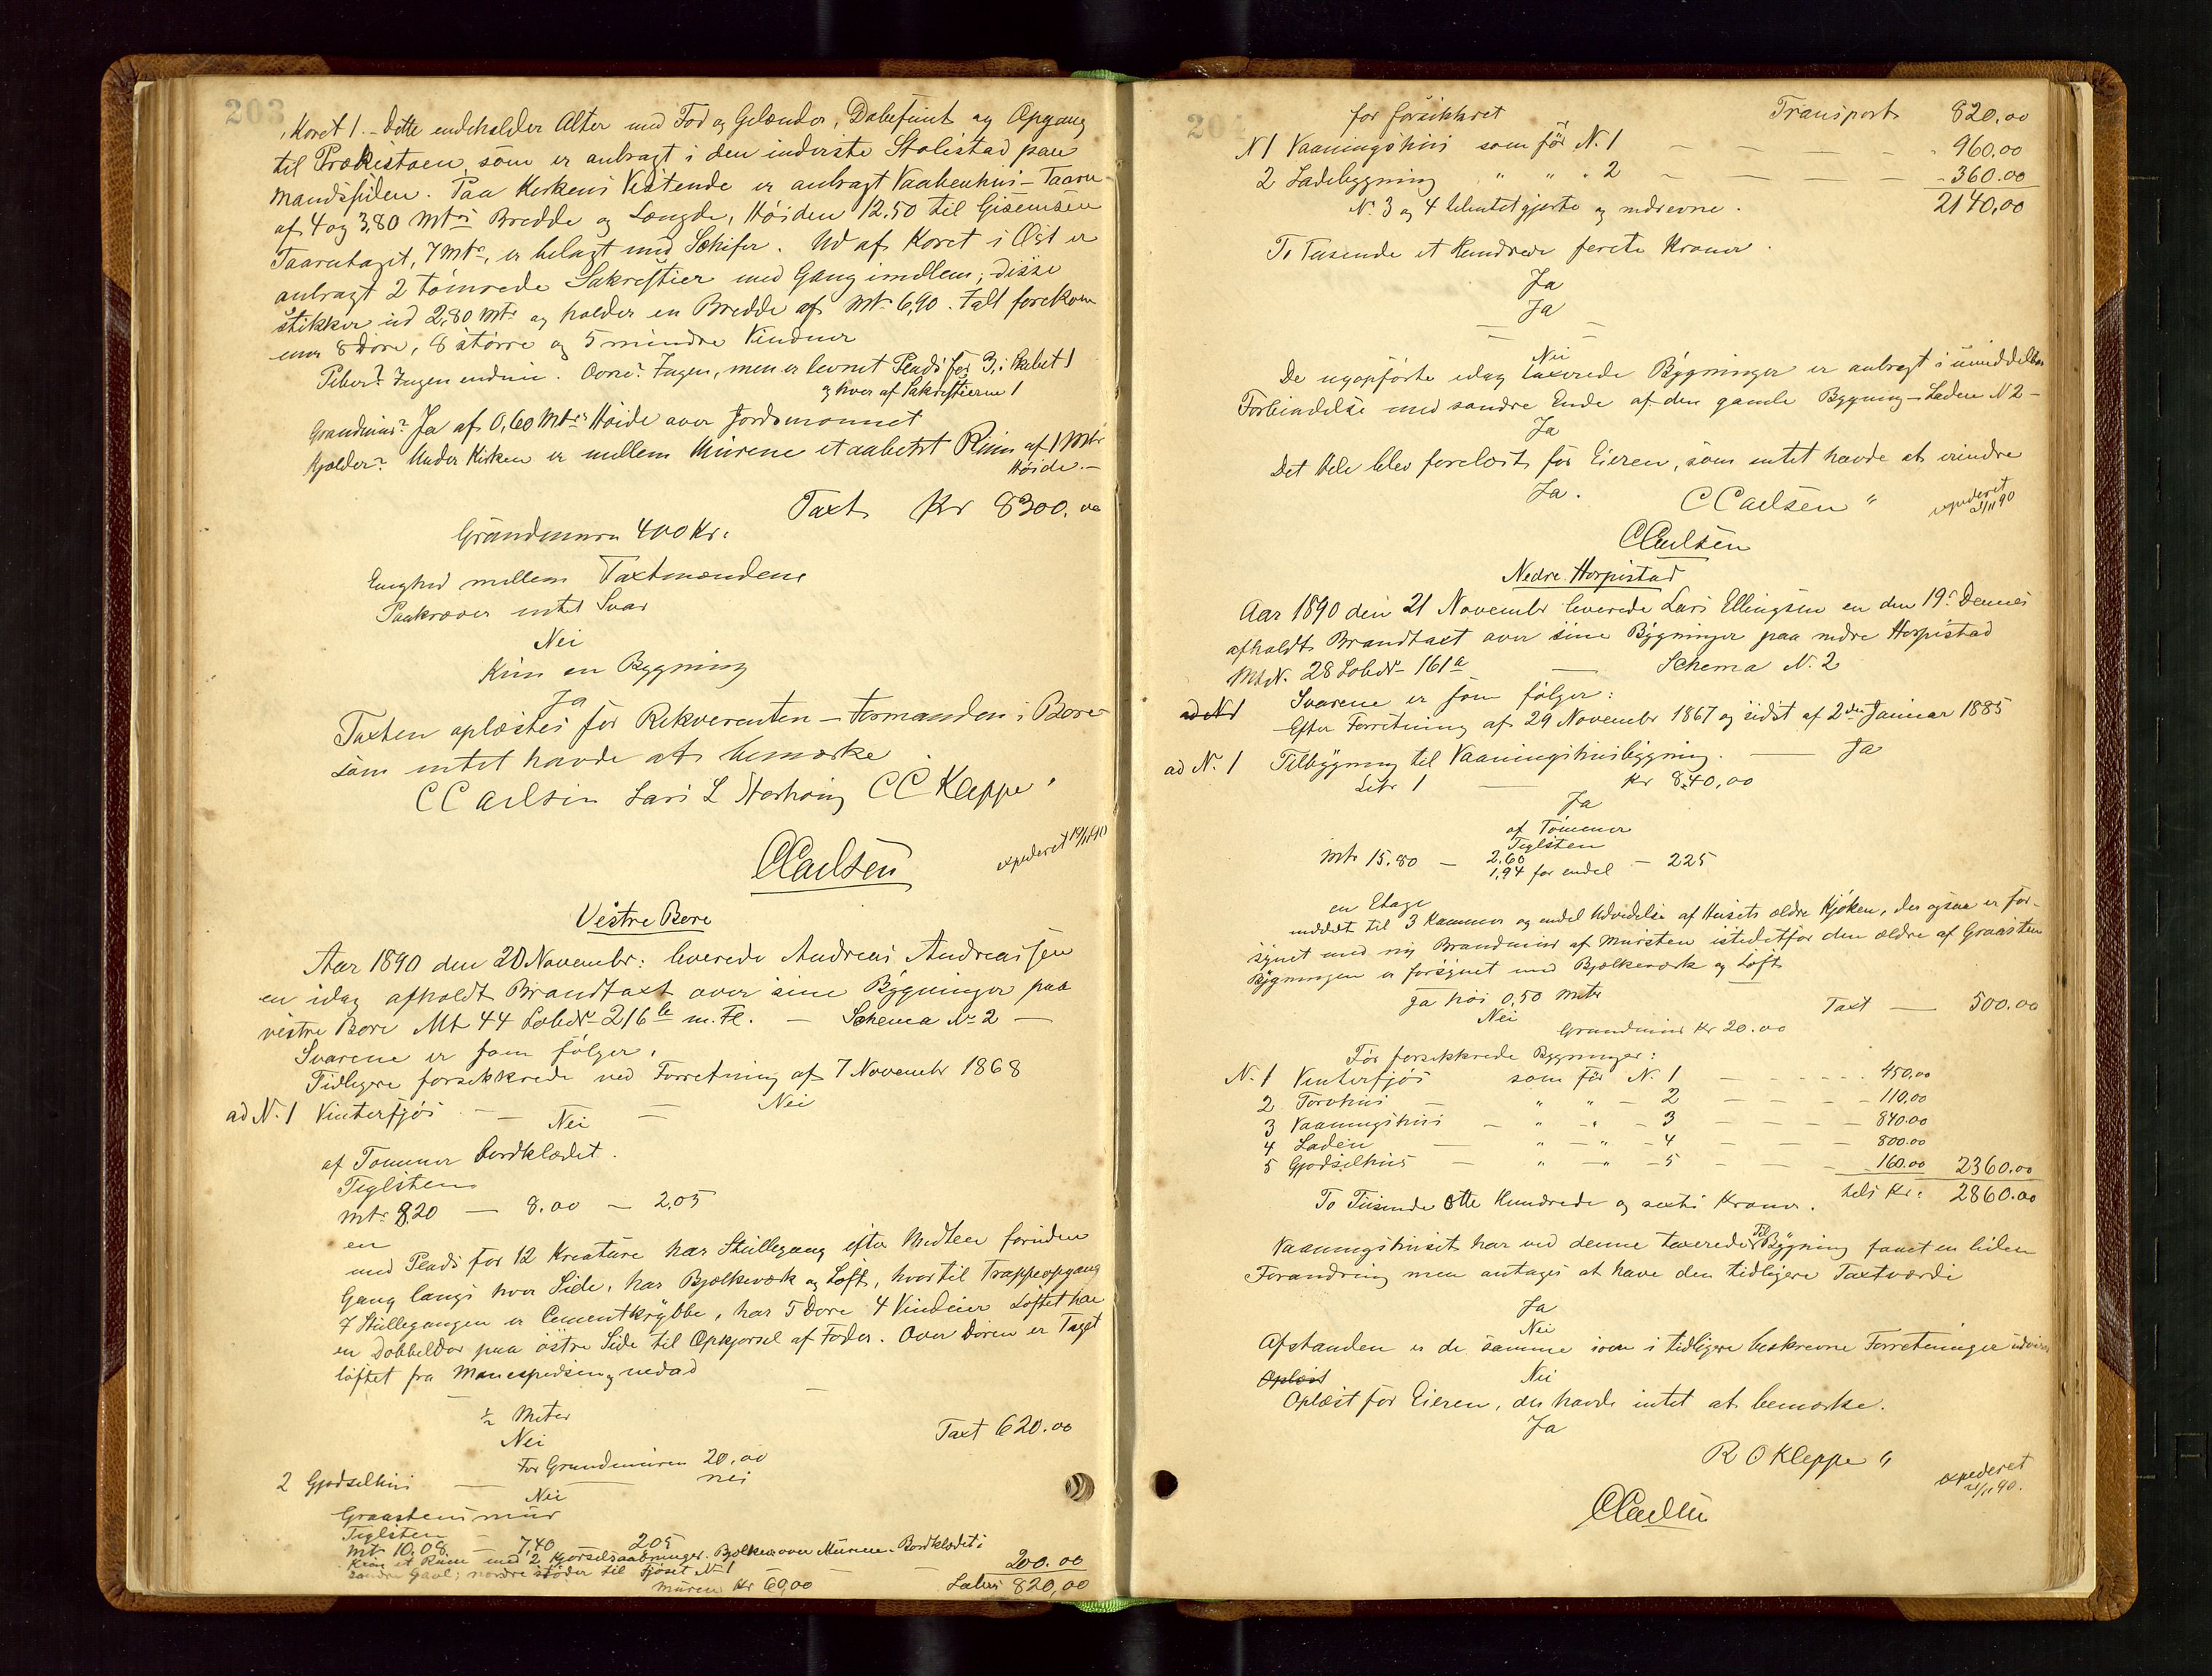 203
Koret 1. Dette indeholder Alter med Fod og Gelænder, Døbefunt og Opgang
til Prækestoen, som er anbragt i den inderste Stolestad paa
Mandssiden. Paa Kirkens Vestende er anbragt Vaabenhus-Taarn
af 4 og 3,80 Mtrs Bredde og Længde, Høiden 12.50 til Gisemsen
Taarntaget, 7 Mtr, er belagt med Schifer. Ud af Koret i Øst er
anbragt 2 tømrede Sakrestier med Gang imellem; disse
stikker ud 2,80 Mtr og holder en Bredde af Mtr 6,90. Ialt forekom
mer 8 Døre, 8 større og 5 mindre Vinduer
Piber? Ingen endnu. Ovne? Ingen, men er levnet Plads for 3, i Skibet 1
og hver af Sakrestierne 1
Grundmur? Ja af 0,60 Mtrs Høide over Jordsmonnet
Kjælder? Under Kirken er mellem Murene et aabent Rum af 1 Mtr
Høide.-
Taxt Kr 8300.00
Grundmuren 400 Kr.
Enighed mellem Taxtmændene
Paakræver intet Svar
Nei
Kun en Bygning
Ja
Taxten oplæstes for Rekvirenten - Formanden i Bore
som intet havde at bemærke
C C Carlsen Lars L Nærheim C C Kleppe
expederet 19/11 90
CCarlsen
Vestre Bore
Aar 1890 den 20 Novembr: leverede Andreas Andreassen
en idag afholdt Brandtaxt over sine Bygninger paa
vestre Bore Mt 44 LobeNr 216 b m. Fl. - Schema No 2 -
Svarene er som følger.
Tidligere forsikkrede ved Forretning af 7 Novembr 1868
ad N. 1 Vinterfjøs - - Nei
Nei
af Tømmer bordklædet.
Teglsten
Mtr 8,20 - 8.00 - 2,05
en
med Plads for 12 Kreature har Stillegang efter Midten foruden
Gang langs hver Side, har Bjælkeværk og Loft, hvortil Trappeopgang
I Stillegangen er Cementkrybbe, har 5 Døre 4 Vinduer Loftet har
en Dobbeldør paa østre Side til Opkjørsel af Foder. Over Døren er Taget
løftet fra nedad
-
1/2 Meter
Nei
Taxt 620.00
For Grundmuren 20,00
2 Gjødselhus - nei
Nei
Graastens mur
Teglsten
Mtr 10,08 - 7,40 205
Kun et Rum med 2 Kjørselsaabninger. Bjelker over Murene. Bordklædet i
søndre Gavl; nordre støder til Fjøset N 1
200.00
Muren Kr 60,00
Lateris 820,00
204
før forsikkret Transport 820.00
N 1 Vaaningshus som før N. 1 - - - - 960.00
2 Ladebygning " " " 2 - - - - 360.00
N. 3 og 4 tilintetgjorte og nedrevne. 2140,00
To Tusende et Hundrede førete Kroner.
Ja
Ja
- -
Nei
De nyopførte idag taxerede Bygninger er anbragt i umiddelbar
Forbindelse med søndre Ende af den gamle Bygning - Laden N 2 -
Ja
Det Hele blev forelæst for Eieren, som intet havde at erindre
Ja.
C Carlsen "
expederet
21/11 90
CCarlsen
Nedre Horpestad
Aar 1890 den 21 Novembr leverede Lars Ellingsen en den 19de Dennes
afholdt Brandtaxt over sine Bygninger paa nedre Horpestad
Mt N. 28 LobeNr 161a - Schema N. 2
Svarene er som følger:
ad N 1 Efter Forretning af 29 Novembr 1867 og sidst af 2den Januar 1885
ad N. 1 Tilbygning til Vaaningshusbygning. - Ja
Litr 1 - Kr 840,00
Ja
af Tømmer
Teglsten
Mtr 15.80 - 2,60 - 225
1,94 for endel
en Etage
inddelt til 3 Kammer og endel Udvidelse af Husets ældre Kjøken, der ogsaa er for-
synet med ny Brandmur af Mursten istedetfor den ældre af Graasten
Bygningen er forsynet med Bjælkeværk og Loft
Ja høi 0,50 Meter
Nei
Taxt - 500.00
Grundmur Kr 20.00
Før forsikkrede Bygninger:
N. 1 Vinterfjøs som før N. 1 - - - - 450.00
2 Torvhus - " " - 2 - - - - 110.00
3 Vaaningshus - " " - 3 - - - - 840.00
4 Laden - " - " - 4 - - - 800.00
5 Gjødselhus - " - " - 5 - - - 160.00 2360.00
To Tusende Otte Hundrede og sexti Kroner. tils Kr: 2860.00
Vaaningshuset har ved denne taxerede Til Bygning faaet en liden
Forandring men antages at have den tidligere Taxtværdi
Ja
Nei
Afstanden er de samme som i tidligere beskrevne Forretninger udvises
Oplæst Nei
Oplæst for Eieren, der havde intet at bemærke.
Ja
R O Kleppe "
expederet
21/11 90.
CCarlsen